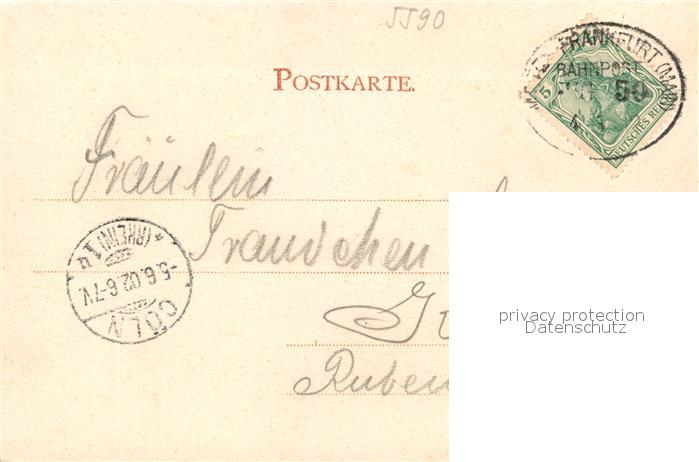 5590
POSTKARTE.
FRANKFURT (MAIN)
BAHNPOST
50
5
DEUTSCHES REICH
Fräulein
Traudchen
*(RHEIN) 1q
-5.6.02.6-7V.
CÖLN
privacy protection
Datenschutz
Ruben